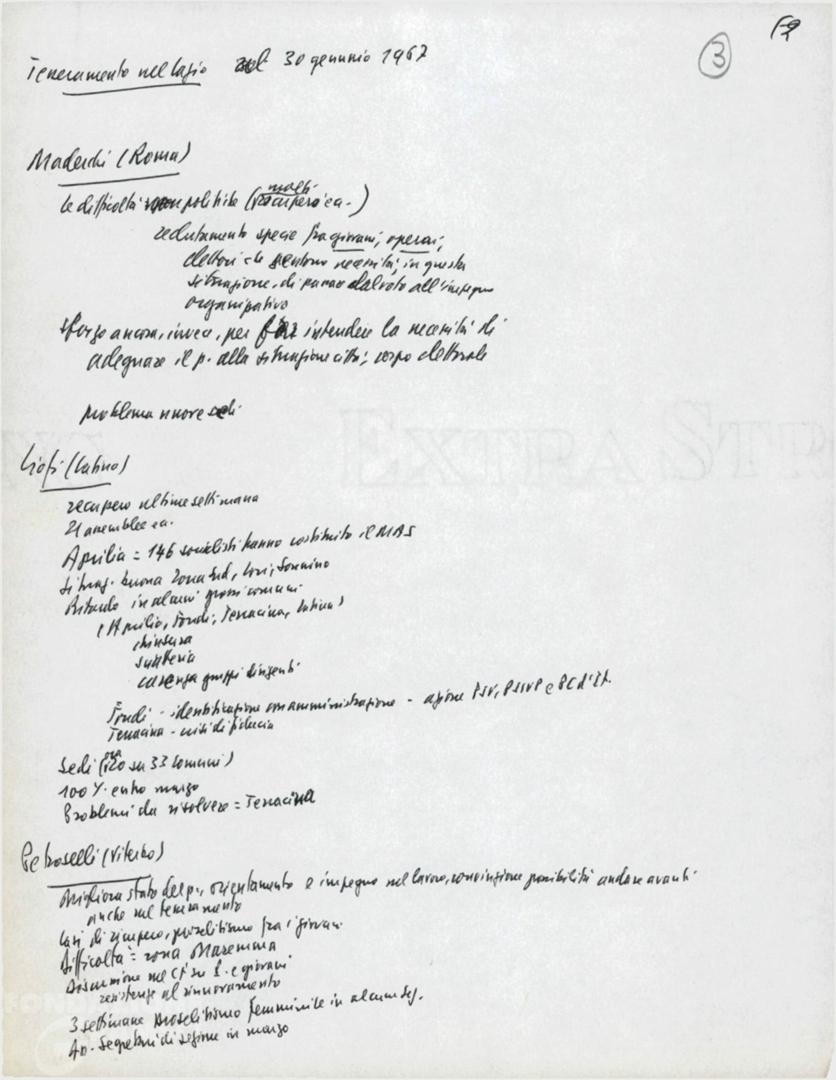 3
Tesseramento nel Lazio al 30 gennaio 1967
Maderchi (Roma)
le difficoltà non politiche (molti recuperi ea.)
reclutamento specie fra giovani, operai,
elettori che sentono necessità, in questa
situazione, di passare dal voto all'impegno
organizzativo
sforzo ancora, invece, per far intendere la necessità di
adeguare il p. alla situazione città, corpo elettorale
problema nuove sedi
(Latina)
recupero ultime settimana
21 assemblee ea.
Aprilia = 146 socialisti hanno costituito il MAS
Situaz. buona zona Sud, Cori, Sonnino
Ritardo in alcuni grossi comuni
(Aprilia, Fondi, Terracina, Latina)
chiusura
carenza gruppi dirigenti
Fondi - identificazione con amministrazione - azione PSU, PSIUP e PCd'I.
Terracina - crisi di fiducia
Sedi ( su 33 comuni)
100% entro marzo
Problemi da risolvere = Terracina
Petroselli (Viterbo)
Migliora stato del p., orientamento e impegno nel lavoro, convinzione possibilità andare avanti
anche nel tesseramento
Casi di recupero, proselitismo fra i giovani
Difficoltà = zona Maremma
Discussione nel CF su e giovani
resistenze al rinnovamento
3 settimane proselitismo femminile in alcune sez.
Ass. Segretari di sezione in marzo
EXTRA STR